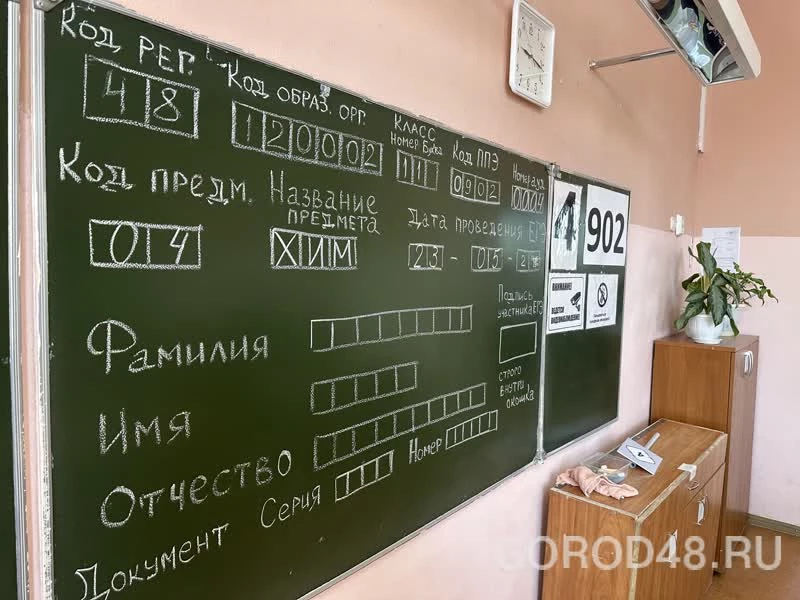 Код РЕГ. Код ОБРАЗ. ОРГ. КЛАСС Код ППЭ Номер ауд
НОМЕР Буква
48 120002 11 0902 0004
Код ПРЕДМ. Название ПРЕДМЕТА Дата проведения ЕГЭ
04 ХИМ 23-05-
Фамилия
Имя
Отчество
Документ Серия Номер
Подпись
участника ЕГЭ
строго
внутри
окошка
4
902
ВНИМАНИЕ!
ВЕДЕТСЯ
ВИДЕОНАБЛЮДЕНИЕ
GOROD48.RU